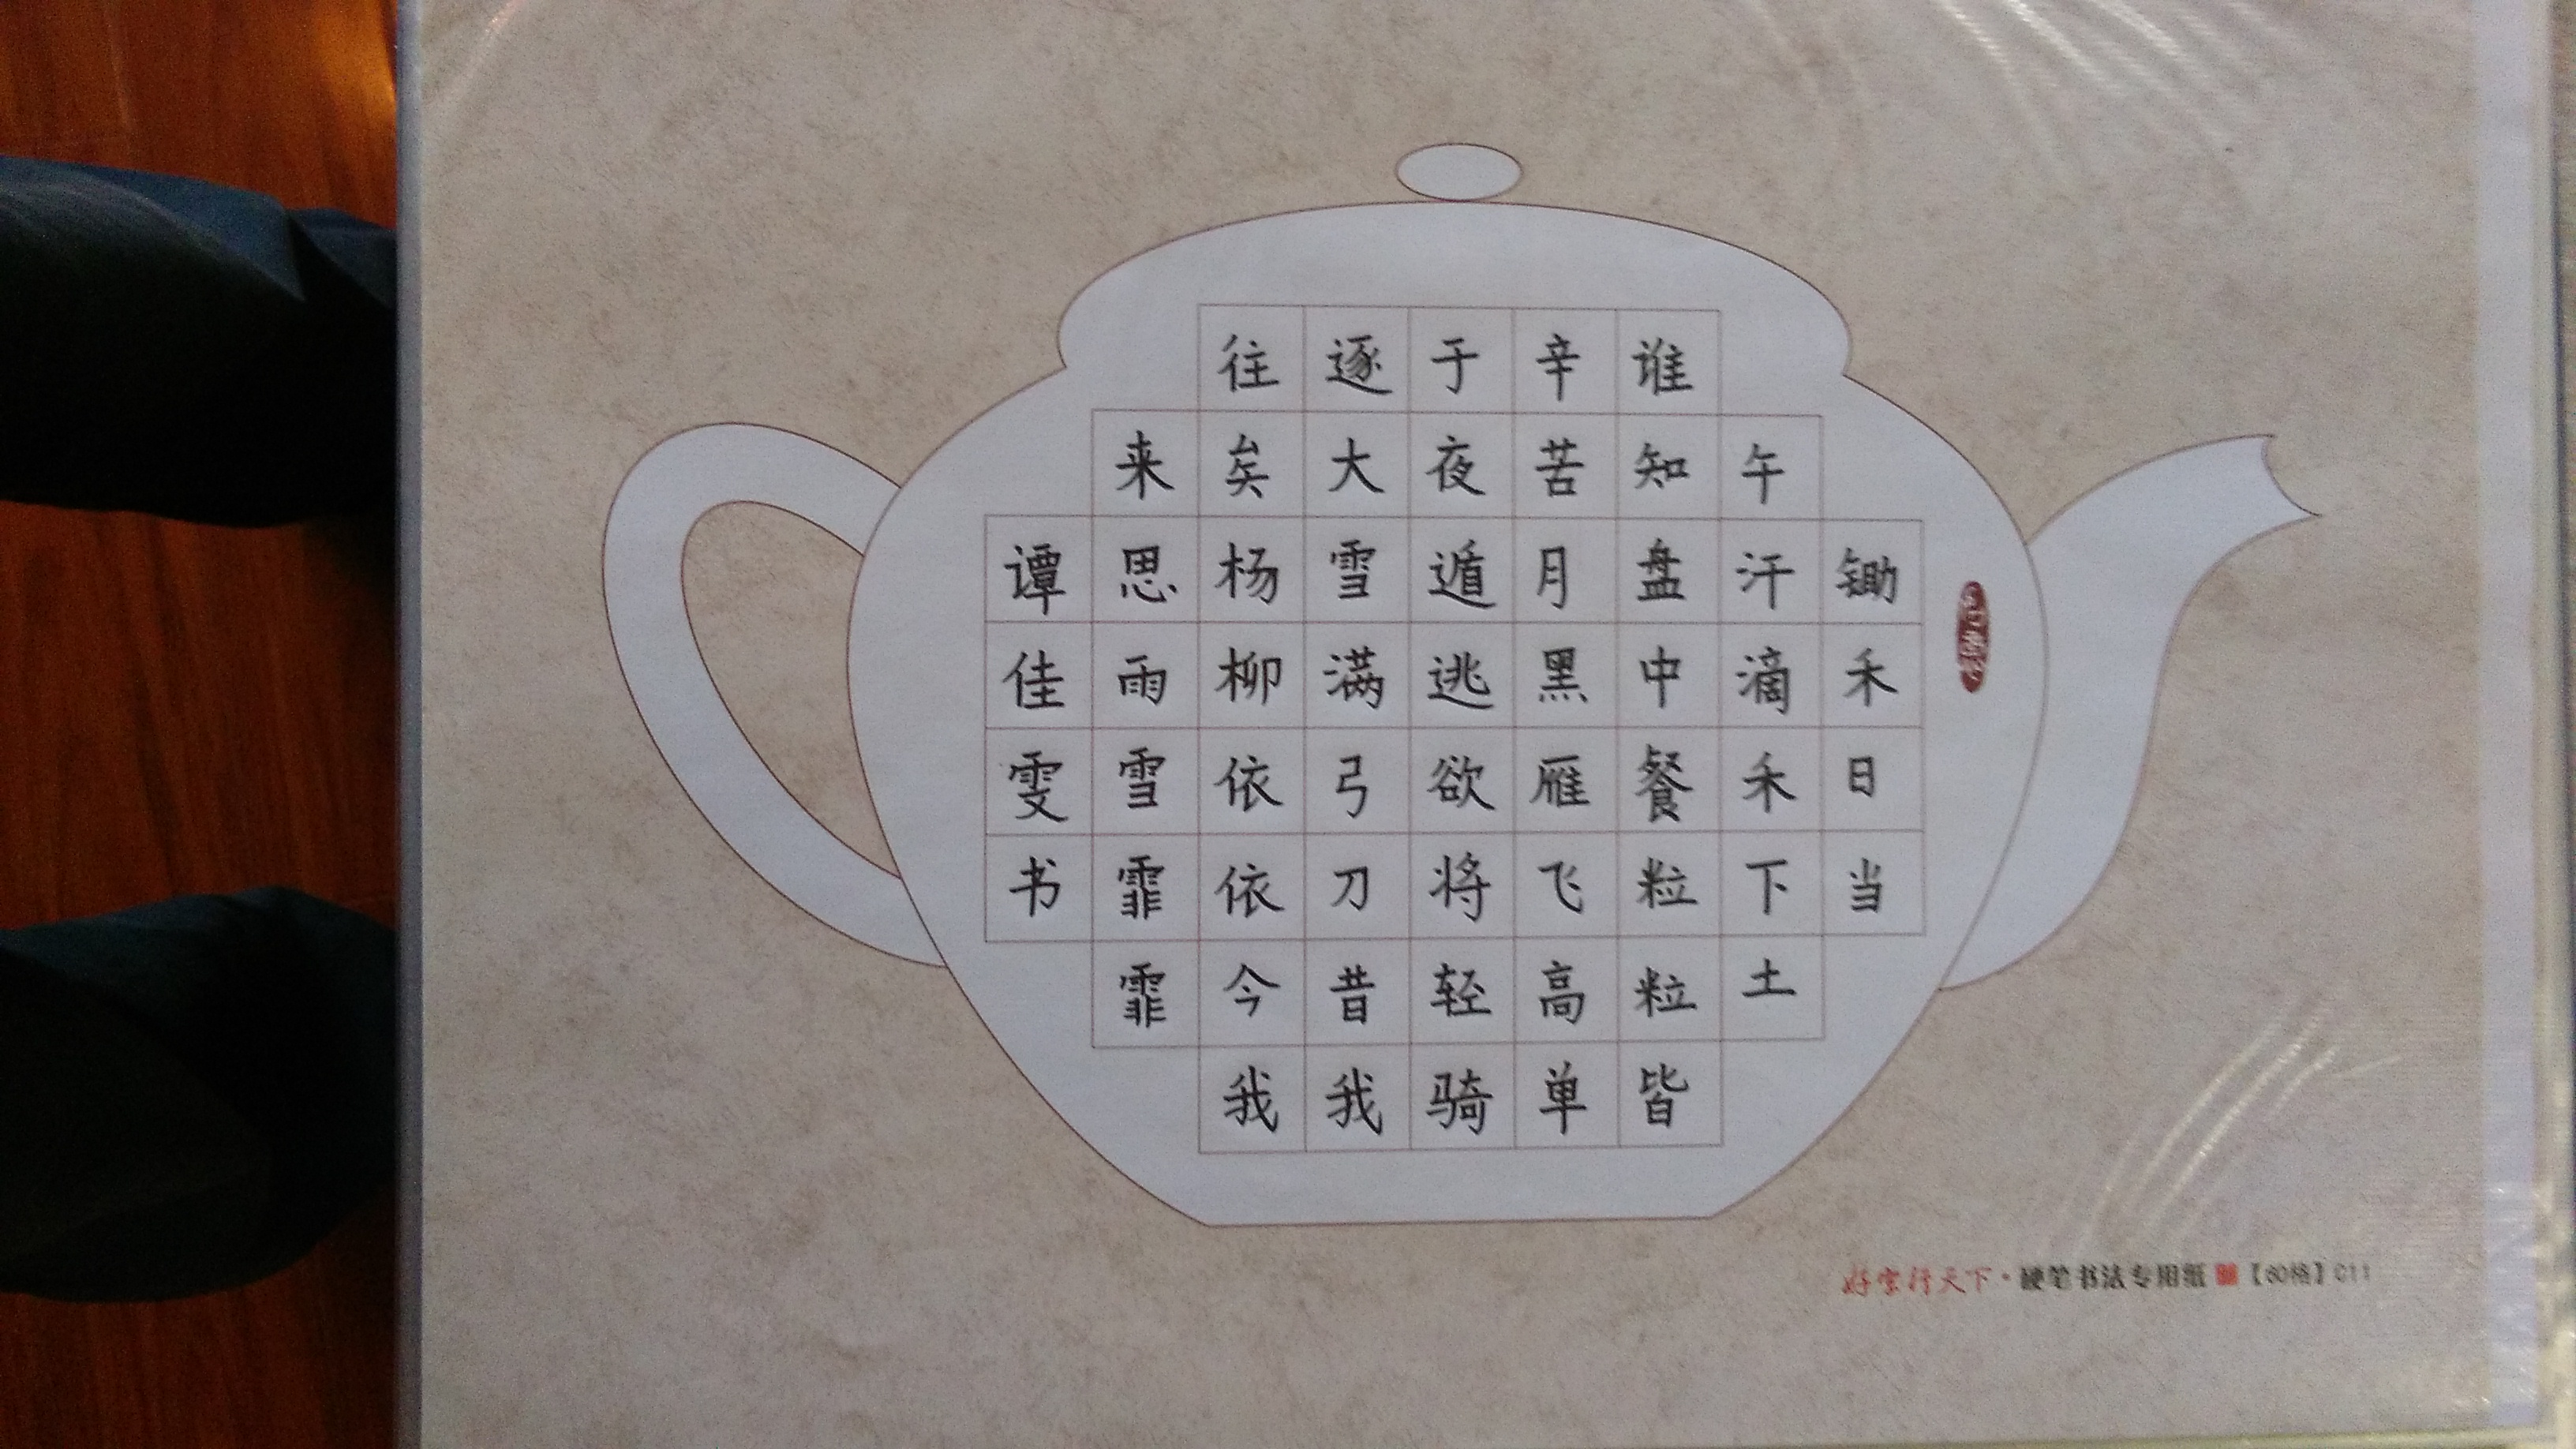 锄禾日当
午汗滴禾下土
谁知盘中餐粒粒皆
辛苦月黑雁飞高单
于夜遁逃欲将轻骑
逐大雪满弓刀昔我
往矣杨柳依依今我
来思雨雪霏霏
谭佳雯书
好字行天下·硬笔书法专用纸【60格】C11